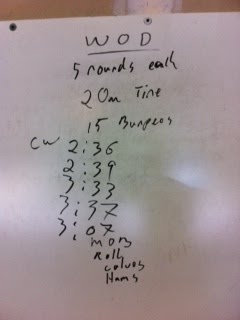 WOD
5 rounds each
20m Tire
15 Burpees
CW 2:36
2:39
3:33
3:37
3:07
Rolls
Calves
Hams